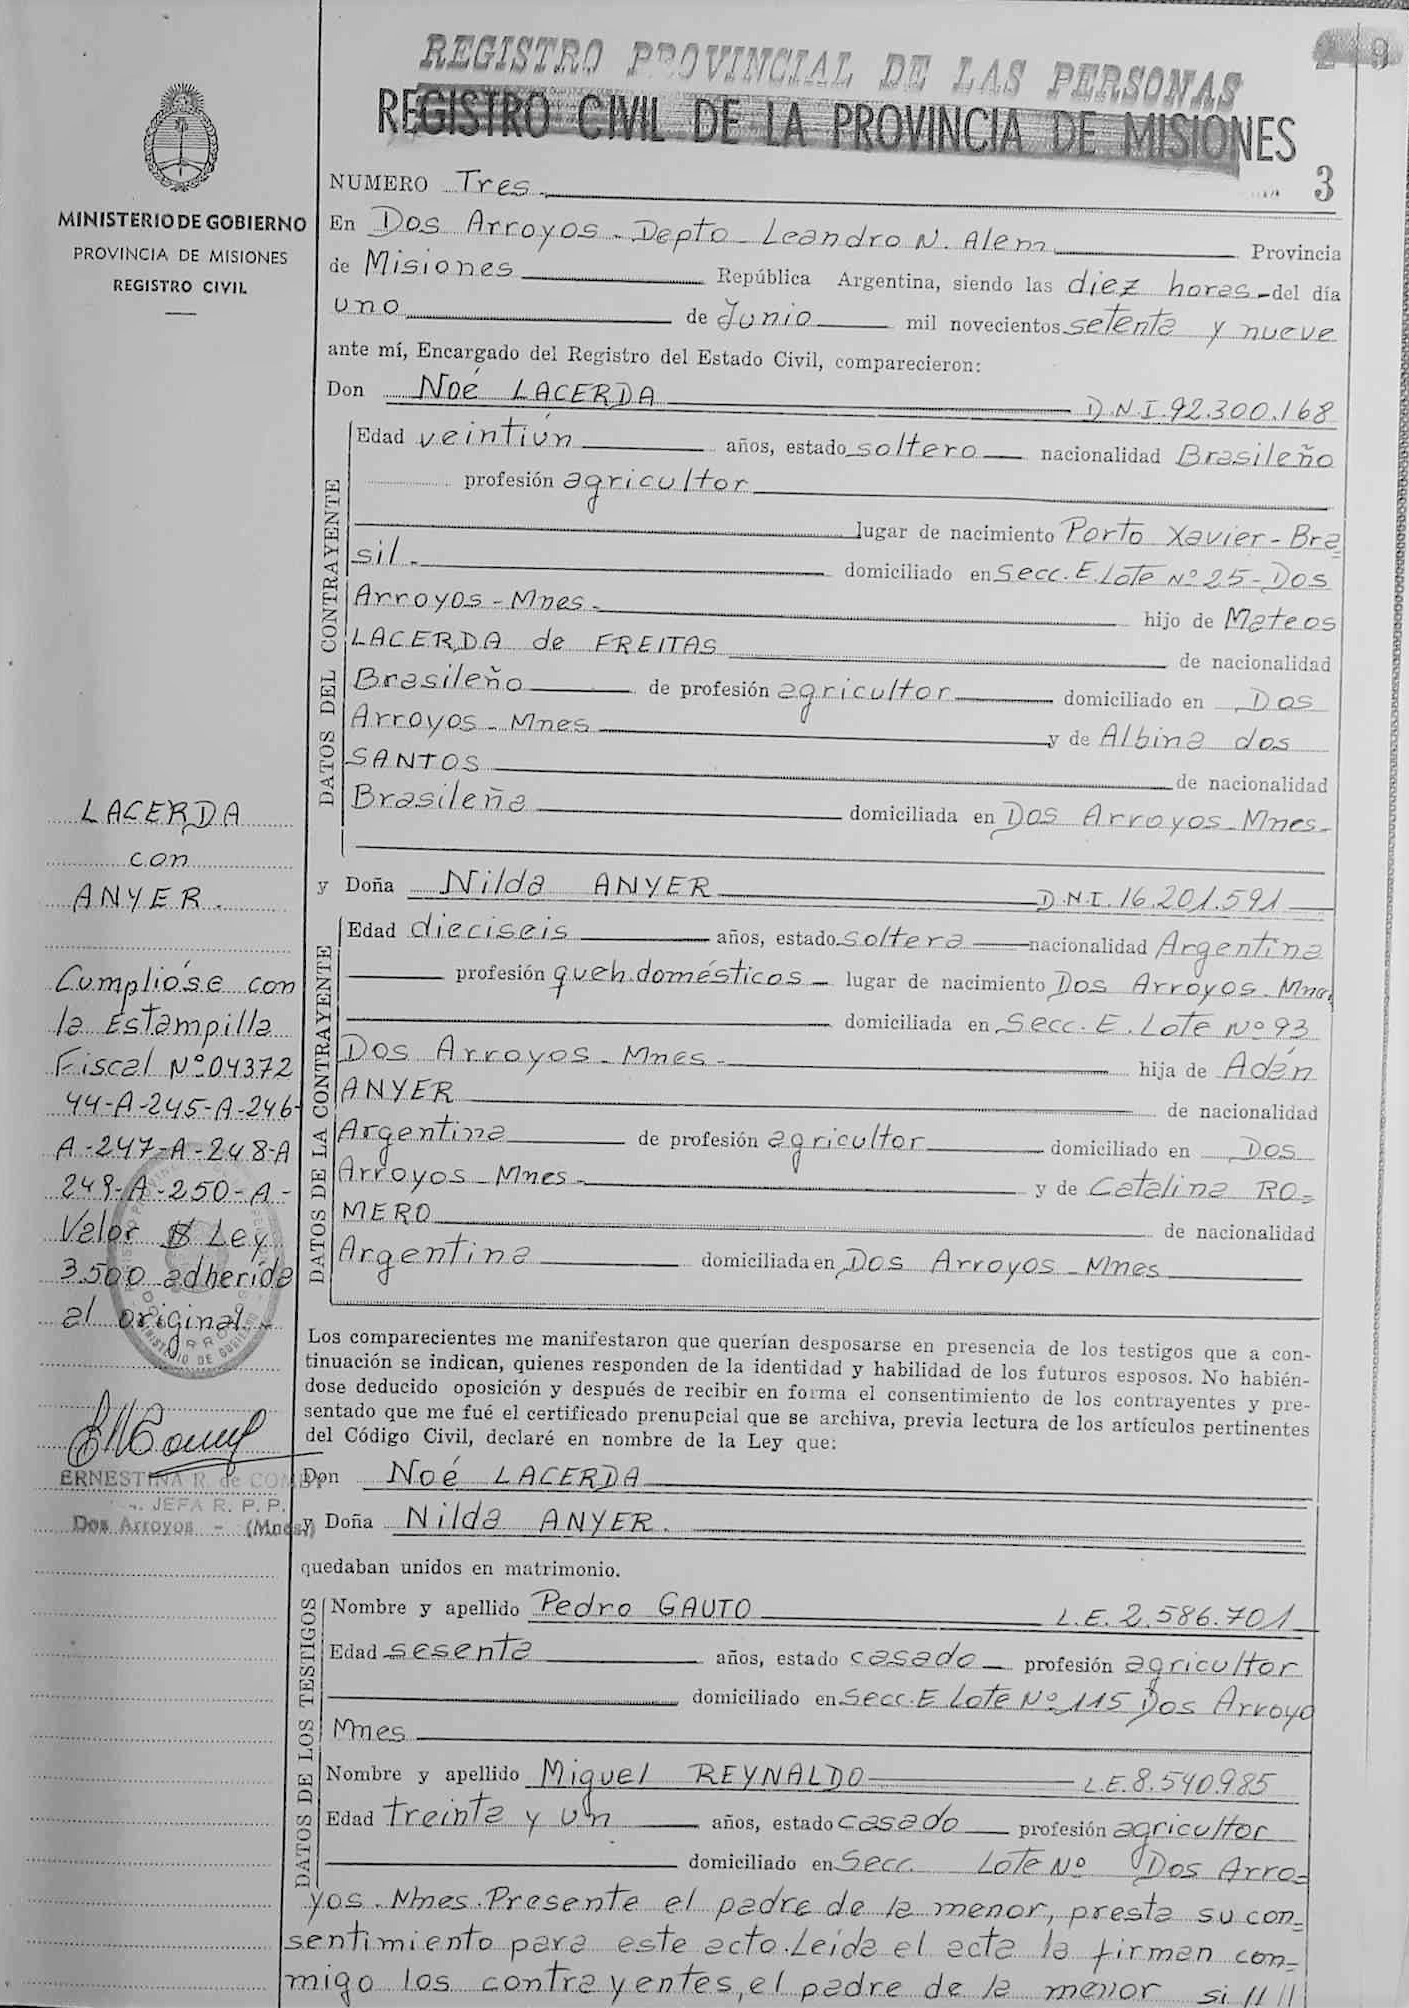 REGISTRO PROVINCIAL DE LAS PERSONAS
REGISTRO CIVIL DE LA PROVINCIA DE MISIONES
3
MINISTERIO DE GOBIERNO
PROVINCIA DE MISIONES
REGISTRO CIVIL
NUMERO Tres
En Dos Arroyos - Depto - Leandro N. Alem Provincia
de Misiones República Argentina, siendo las diez horas - del día
uno de Junio mil novecientos setenta y nueve
ante mí, Encargado del Registro del Estado Civil, comparecieron:
Don Noé LACERDA D.N.I. 92.300.168
DATOS DEL CONTRAYENTE
Edad veintiún años, estado soltero nacionalidad Brasileño
profesión agricultor
lugar de nacimiento Porto Xavier - Bra
sil. domiciliado en Secc. E. Lote Nº 25 - Dos
Arroyos - Mnes - hijo de Mateos
LACERDA de FREITAS de nacionalidad
Brasileño de profesión agricultor domiciliado en Dos
Arroyos - Mnes y de Albina dos
SANTOS de nacionalidad
Brasileña domiciliada en Dos Arroyos - Mnes -
y Doña Nilda ANYER D.N.I. 16.201.591
DATOS DE LA CONTRAYENTE
Edad dieciseis años, estado soltera nacionalidad Argentina
profesión queh. domésticos - lugar de nacimiento Dos Arroyos - Mnes
domiciliada en Secc. E. Lote Nº 93
Dos Arroyos - Mnes - hija de Adán
ANYER de nacionalidad
Argentina de profesión agricultor domiciliado en Dos
Arroyos - Mnes - y de Catalina RO=
MERO de nacionalidad
Argentina domiciliada en Dos Arroyos - Mnes
Los comparecientes me manifestaron que querían desposarse en presencia de los testigos que a con-
tinuación se indican, quienes responden de la identidad y habilidad de los futuros esposos. No habién-
dose deducido oposición y después de recibir en forma el consentimiento de los contrayentes y pre-
sentado que me fué el certificado prenupcial que se archiva, previa lectura de los artículos pertinentes
del Código Civil, declaré en nombre de la Ley que:
Don Noé LACERDA
y Doña Nilda ANYER.
quedaban unidos en matrimonio.
DATOS DE LOS TESTIGOS
Nombre y apellido Pedro GAUTO L.E. 2.586.701
Edad sesenta años, estado casado - profesión agricultor
domiciliado en Secc. E Lote Nº 115 Dos Arroyo
Mnes
Nombre y apellido Miguel REYNALDO L.E. 8.540.985
Edad treinta y un años, estado casado profesión agricultor
domiciliado en Secc. Lote Nº Dos Arro=
yos. Mnes. Presente el padre de la menor, presta su con=
sentimiento para este acto. Leída el acta la firman con=
migo los contrayentes, el padre de la menor si ////
LACERDA
con
ANYER.
Cumplióse con
la Estampilla
Fiscal Nº 04372
44-A-245-A-246-
A-247-A-248-A
249-A-250-A-
Valor $ Ley
3.500 adherida
al original -
ERNESTINA R. de
JEFA R. P. P.
Dos Arroyos - (Mnes)